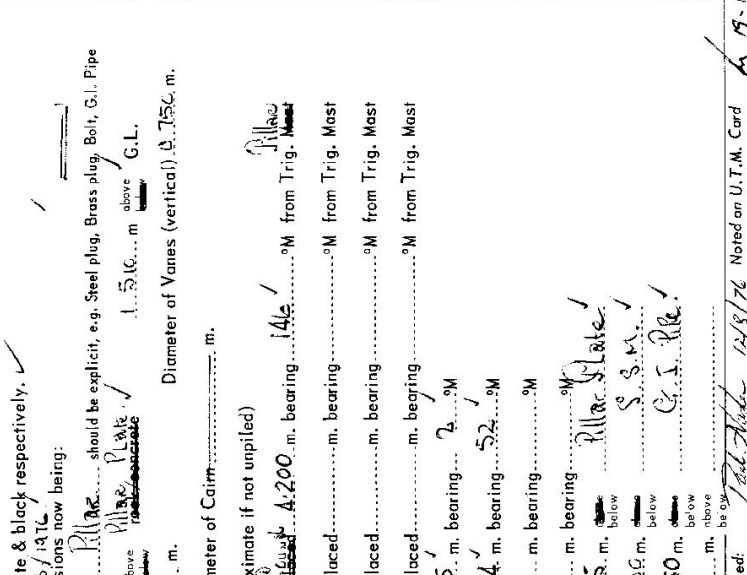 te & black respectively. ✓
/1976
sions now being:
Pillar should be explicit, e.g. Steel plug, Brass plug, Bolt, G.I. Pipe
bove Pillar Plate ✓ 1.510 m above G.L.
m. Diameter of Vanes (vertical) 0.750 m.
meter of Cairn m.
ximate if not unpiled)
4.200 m. bearing 146 ✓ °M from Trig. Pillar
laced m. bearing °M from Trig. Mast
laced m. bearing °M from Trig. Mast
laced m. bearing °M from Trig. Mast
m. bearing 2 °M
m. bearing 52 ✓ °M
m. bearing °M
m. bearing °M
m. below Pillar Plate ✓
m. below S.S.M. ✓
m. below G.I. Pipe ✓
m. above below
ed: 12/8/76 Noted on U.T.M. Card 19-